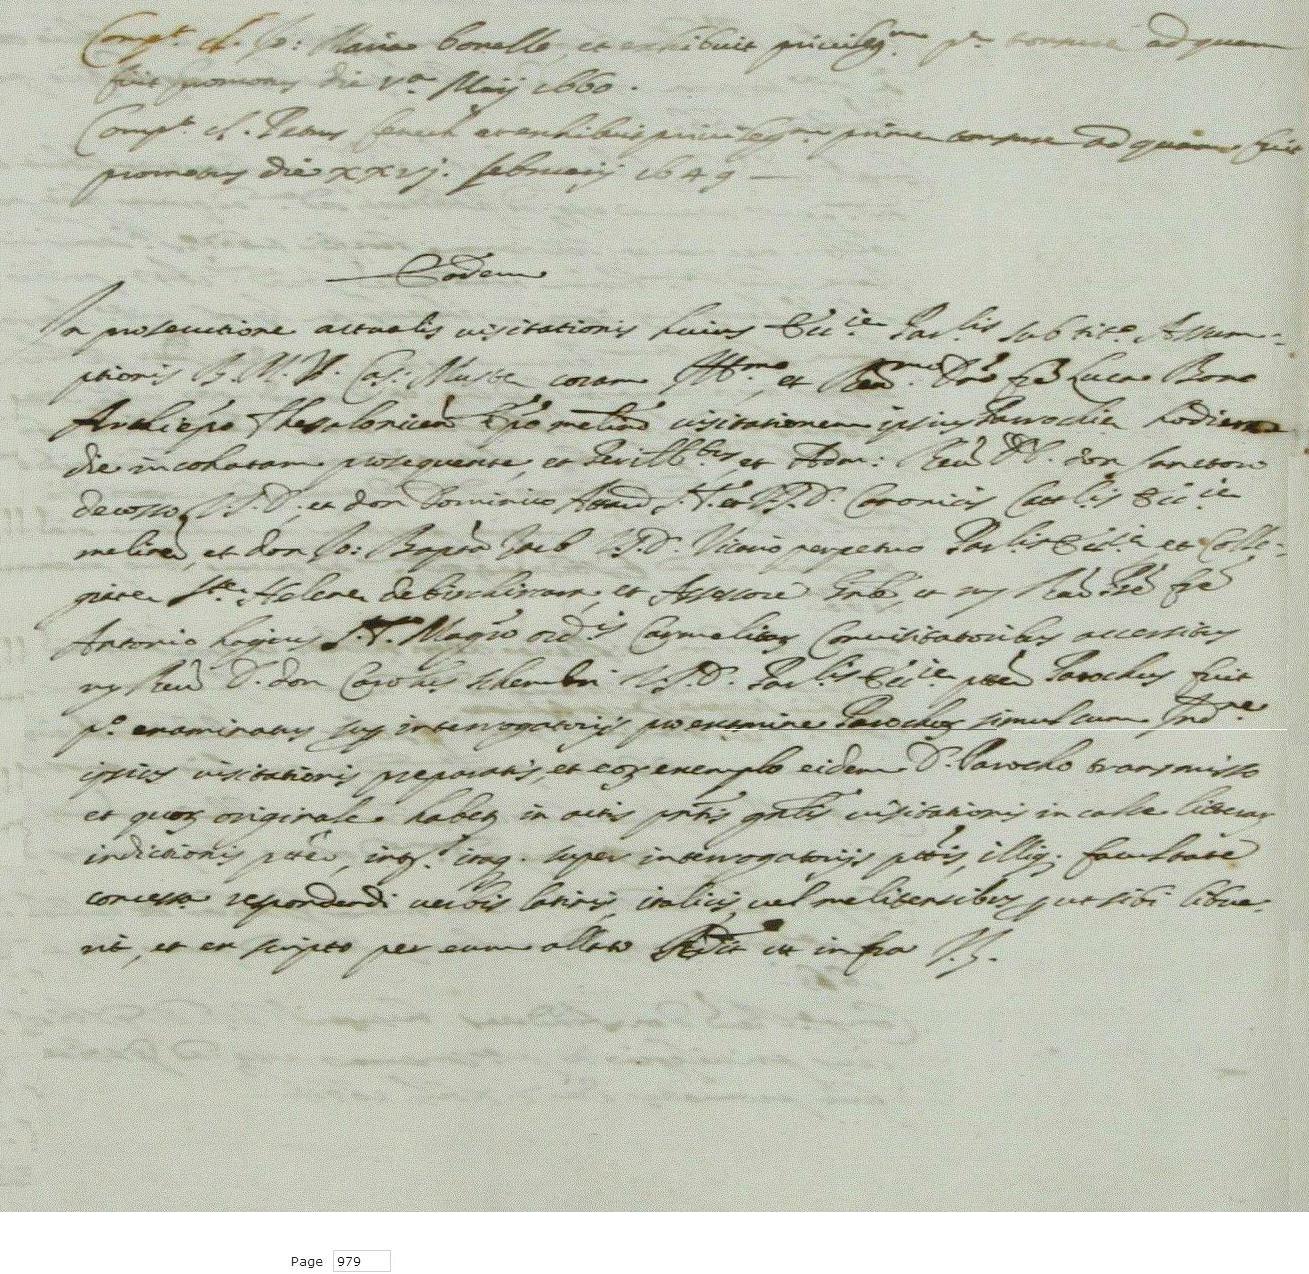 Comp.t cl. Jo: Maria bonello, et exhibuit privileg.um p.e tonsure ad quam
fuit promotus die v.a Maij 1660.
Comp.t cl. Petrus fenech et exhibuit privileg.m prime tonsure ad quam fuit
promotus die xxvj. februarij 1649
Eodem
In prosecutione actualis visitationis huius Ecc.ie Par.lis sub tit.o Assum-
ptionis B. M. V. Cas. Muste coram Ill.mo et Rev.mo Dno fre Luca Bono
Archiepo Thessalonicen Epo meliten visitationem ipsius Parochie hodierna
die incohatam prosequente, et Perill.bus et Adm: Rev. DD. don
J.V.D. et don Dominico S.T. et J.V.D. Canonicis Cat.lis Ecc.ie
meliten, et don Jo: Bapta J.V.D. Vicario perpetuo Par.lis Ecc.ie et Colle-
giate S.te Helene de birchircara, et Assessore et Rev. Pre fre
Antonio S.T. Magro ord.is Carmelitar Convisitatoribus accersitus
Rev. D. don Carolus schembri J.V.D. Par.lis Ecc.ie pte Parochus fuit
p.o examinatus sup interrogatorijs pro examine Parochor simul cum
ipsius visitationis preparatis, et eor exemplo eidem D. Parocho transmisso
et quor originale habet in actis pntis gnlis visitationis in calce litterar
indictionis super interrogatorijs ptis, illiq. facultate
concessa respondendi verbis latinis, italicis, vel melitensibus, put sibi libue-
rit, et ex scripto per eum allato ut infra V.Z.
Page 979